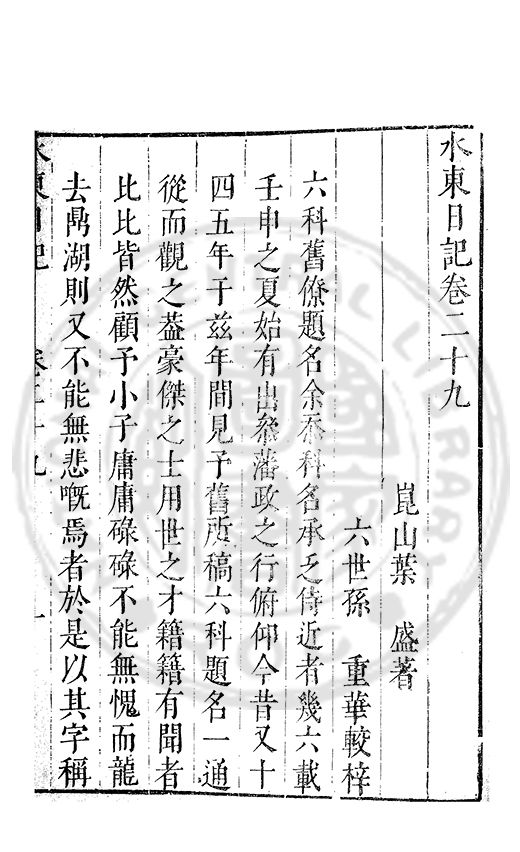 水東日記卷二十九
崑山葉　盛著
六世孫　重華較梓
六科舊僚題名余忝科名承乏侍近者幾六載
壬申之夏始有出叅藩政之行俯仰今昔又十
四五年于兹年間見予舊所稿六科題名一通
從而觀之葢豪傑之士用世之才籍籍有聞者
比比皆然顧予小子庸庸碌碌不能無愧而龍
去鼎湖則又不能無悲嘅焉者於是以其字稱
水東日記　卷二十九　一